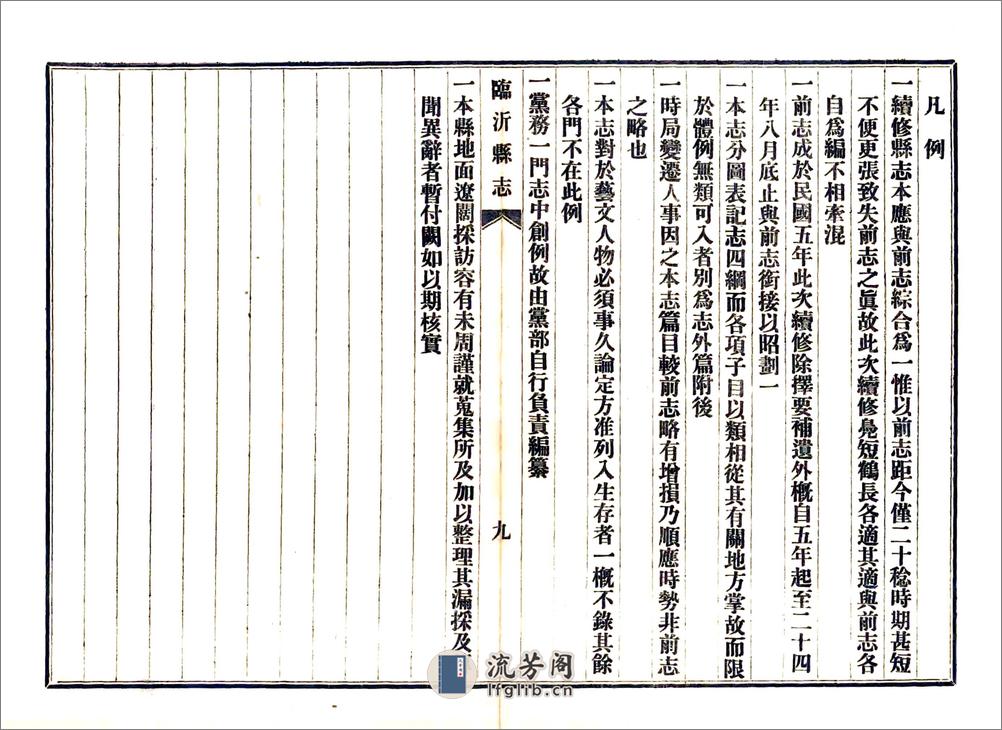 凡例
一續修縣志本應與前志綜合爲一惟以前志距今僅二十稔時期甚短
不便更張致失前志之眞故此次續修鳧短鶴長各適其適與前志各
自爲編不相牽混
一前志成於民國五年此次續修除擇要補遺外槪自五年起至二十四
年八月底止與前志銜接以昭劃一
一本志分圖表記志四綱而各項子目以類相從其有關地方掌故而限
於體例無類可入者別爲志外篇附後
一時局變遷人事因之本志篇目較前志略有增損乃順應時勢非前志
之略也
一本志對於藝文人物必須事久論定方准列入生存者一槪不錄其餘
各門不在此例
一黨務一門志中創例故由黨部自行負責編纂
臨沂縣志
九
一本縣地面遼闊採訪容有未周謹就蒐集所及加以整理其漏採及
聞異辭者暫付闕如以期核實
流芳阁
lfglib.cn